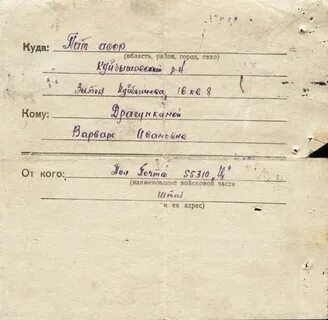 Куда: Тат асср
(область, район, город, село)
Куйбышевский р-н
Затон Куйбышева 16 кв 8
Кому: Драгункиной
Варваре Ивановне
От кого: Пол Почта 55310 "Ц"
(наименование войсковой части
штаб
и ее адрес)